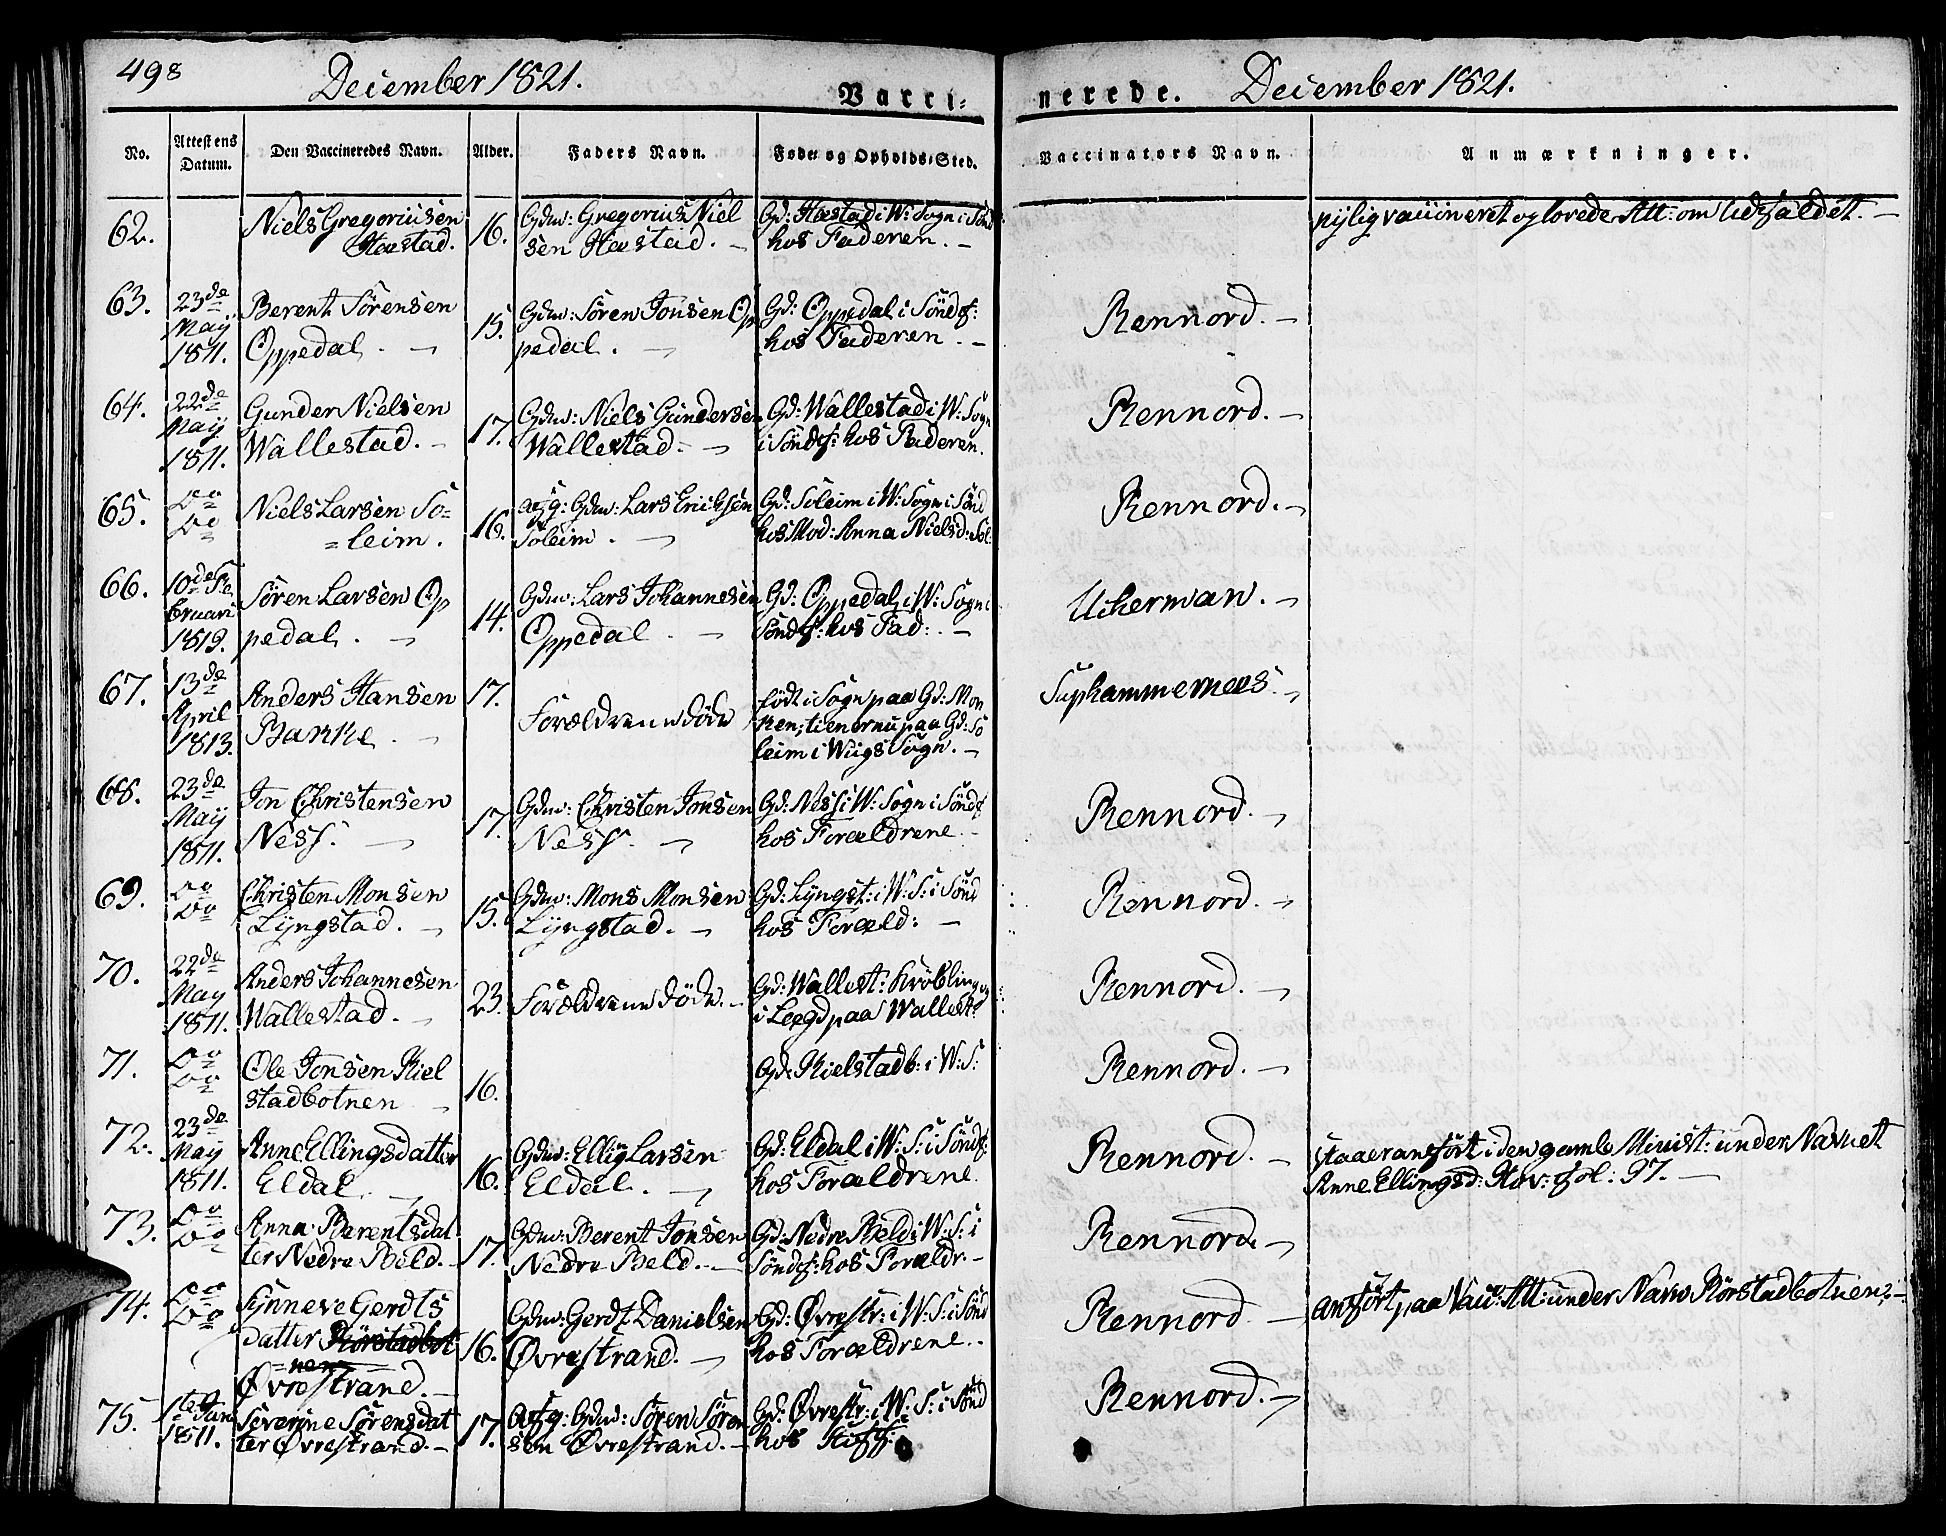 498
December 1821.
Vacci-
nerede.
December 1821.
No.
Attestens Datum.
Den Vaccineredes Navn.
Alder.
Faders Navn.
Føde og Opholds-Sted.
Vaccinators Navn.
Anmærkninger.
62.
Niels Gregoriusen
Hæstad.
16.
Gdm: Gregorius Niel
sen Hæstad. -
Gd: Hæstad i W: Sogn i Sönd
hos Faderen. -
nylig vaccineret og lovede Att: om Udfaldet. -
63.
23de
Maÿ
1811.
Berent Sörensen
Oppedal. -
15.
Gdm: Sören Jonsen Op
pedal. -
Gd: Oppedal i Söndf:
hos Faderen. -
Rennord. -
64.
22de
Maÿ
1811.
Gunder Nielsen
Wallestad. -
17.
Gdm: Niels Gundersen
Wallestad. -
Gd: Wallestad i W: Sogn
i Söndf: hos Faderen.
Rennord. -
65.
Do
Do
Niels Larsen So=
=leim.
16.
afg: Gdm: Lars Erichsen
Soleim. -
Gd: Soleim i W: Sogn i Sönd
hos Mod: Anna Nielsd: Sol:
Rennord. -
66.
10de Fe
bruari
1813.
Sören Larsen Op
pedal. -
14.
Gdm: Lars Johannesen
Oppedal. -
Gd: Oppedal i W: Sogn i
Söndf: hos Fad: -
Ucherman. -
67.
13de
April
1813.
Anders Hansen
Barke. -
17.
Forældrene döde
födt i Sogn paa Gd: Mon
ken; tiener nu paa Gd: So
leim i Wiigs Sogn. -
Suphammernees. -
68.
23de
Maÿ
1811.
Jon Christensen
Ness. -
17.
Gdm: Christen Jonsen
Ness. -
Gd: Ness i W: Sogn i Söndf
hos Forældrene. -
Rennord. -
69.
Do
Do
Christen Monsen
Lÿngstad. -
15.
Gdm: Mons Monsen
Lÿngstad. -
Gd: Lÿngst: i W: S: i Sönd
hos Foræld: -
Rennord. -
70.
22de
May
1811.
Anders Johannesen
Wallestad. -
23.
Forældrene döde. -
Gd: Wallest: Kröblingen
i Lægd paa Wallest:
Rennord. -
71.
Do
Do
Ole Jonsen Kiel
stadbotnen -
16.
Gd: Kielstadb: i W: S:
Rennord. -
72.
23de
Maÿ
1811.
Anne Ellingsdatter
Eldal. -
16.
Gdm: Ellig Larsen
Eldal. -
Gd: Eldal i W: S: i Söndf:
hos Forældrene.
Rennord. -
staaer anfört i den gamle Minist: under Navnet
Anne Ellingsd: Hov: fol: 97. -
73.
Do
Do
Anna Berentsdat
ter Nedre Beld. -
17.
Gdm: Berent Jonsen
Nedre Beld. -
Gd: Nedre Beld i W: S: i
Söndf: hos Forældr: -
Rennord. -
74.
Do
Do
Sÿnneve Gerdts
datter Körstadbot
=nen
Øvrestrand. -
16.
Gdm: Gerdt Danielsen
Øvrestrand. -
Gd: Øvrestr: i W: S: i Sönd
hos Forældrene. -
Rennord. -
anfört paa Vacc: Att: under Navn Körstadbotnen. -
75.
1ste Jun
1811.
Severine Sörensdat
ter Øvrestrand. -
17.
afg: Gdm: Sören Sören
sen Øvrestrand. -
Gd: Øvrestr: i W: S: i Sönd
hos
Rennord. -